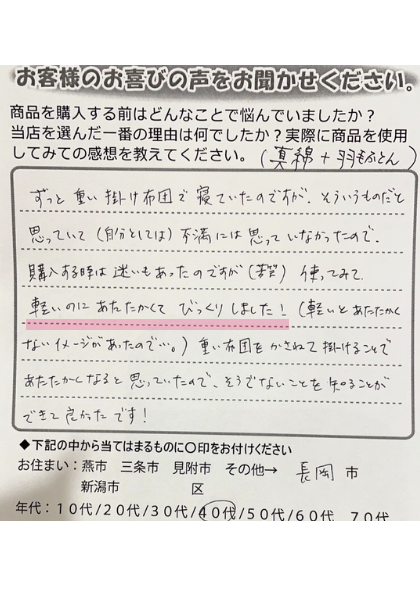 お客様のお喜びの声をお聞かせください。
商品を購入する前はどんなことで悩んでいましたか？
当店を選んだ一番の理由は何でしたか？実際に商品を使用
してみての感想を教えてください。（真綿＋羽毛ふとん）
ずっと重い掛け布団で寝ていたのですが、そういうものだと
思っていて（自分としては）不満には思っていなかったので、
購入する時は迷いもあったのですが（まだ）使ってみて
軽いのにあたたかくてびっくりしました！（軽いとあたたかく
ないイメージがあったので…。）重い布団をかさねて掛けることで
あたたかくなると思っていたので、そうでないことを知ることが
できて良かったです！
◆下記の中から当てはまるものに〇印をお付けください
お住まい：燕市 三条市 見附市 その他→ 長岡 市
新潟市 区
年代：１０代/２０代/３０代/４０代/５０代/６０代 ７０代